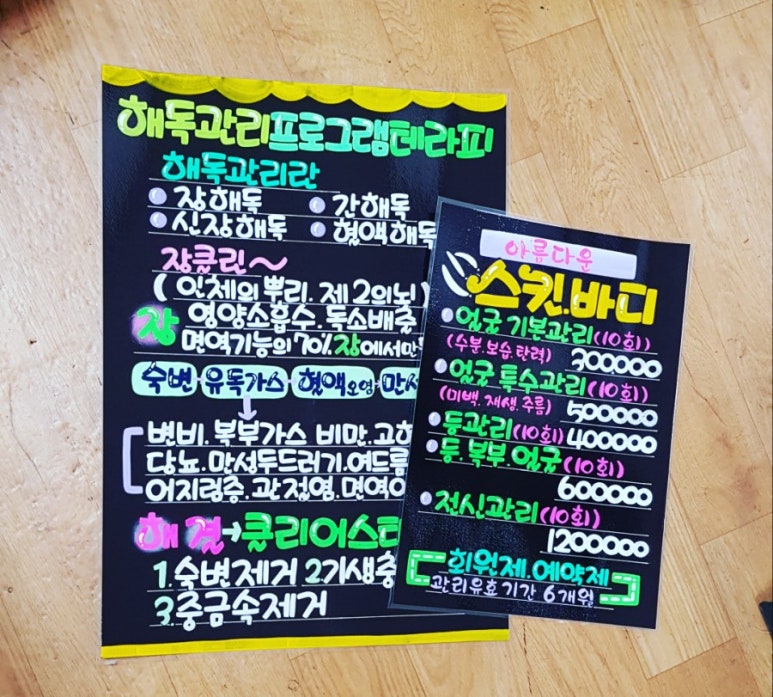 해독관리프로그램테라피
해독관리란
장해독 간해독
신장해독 혈액해독
장클린~
(인체의뿌리. 제2의뇌)
장 영양소흡수. 독소배출
면역기능의70%장에서만
숙변-유독가스-혈액오염-만성
변비. 복부가스 비만.고혈
당뇨.만성두드러기.여드름
어지럼증.관절염.면역
해결→클리어스
1.숙변제거 2기생충
3.중금속제거
아름다운
스킨.바디
얼굴 기본관리(10회)
(수분.보습.탄력) 300000
얼굴 특수관리(10회)
(미백.재생.주름) 500000
등관리(10회) 400000
등.복부.얼굴(10회)
600000
전신관리(10회)
1200000
회원제.예약제
관리유효기간 6개월